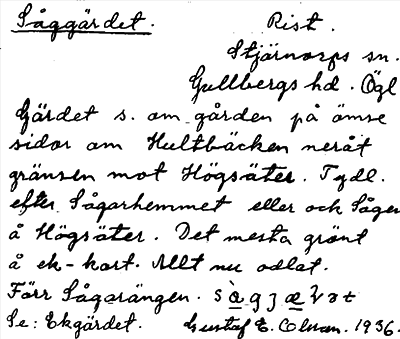 Såggärdet. Rist.
Stjärnorps sn.
Gullbergs hd. Ögl
Gärdet s. om gården på ömse
sidor om Hultbäcken neråt
gränsen mot Högsäter. Tydl.
efter Sågarhemmet eller och Sågen
å Högsäter. Det mesta grönt
å ek-kart. Allt nu odlat.
Förr Sågarängen.
Se: Ekgärdet. Gustaf E. Olsson. 1936.